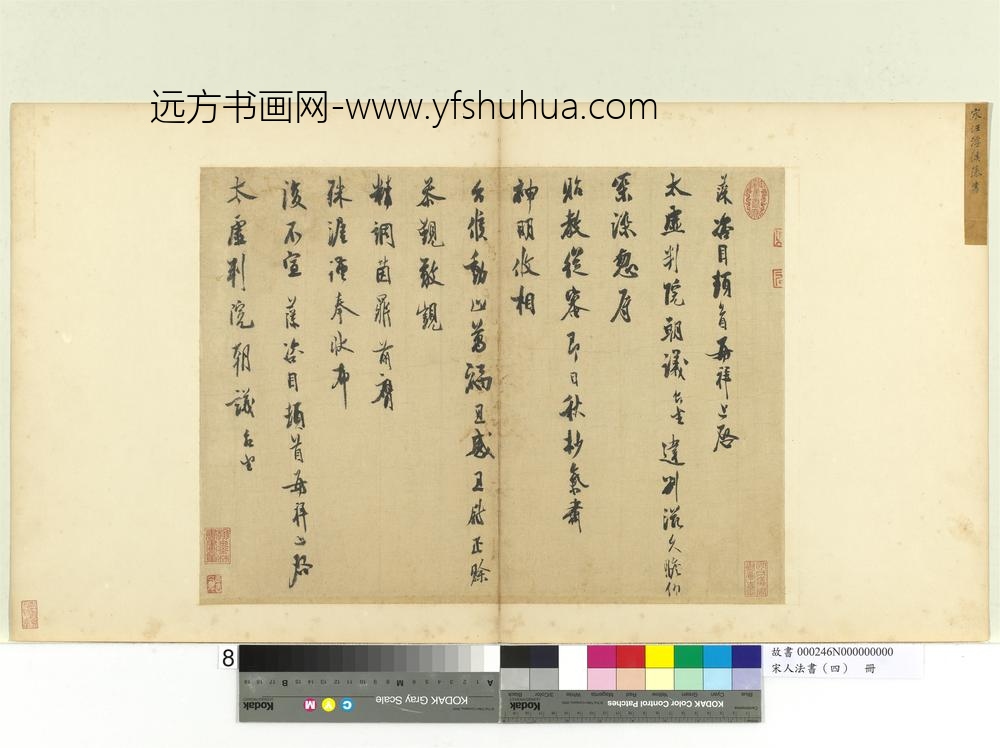 远方书画网-www.yfshuhua.com
宋汪藻法書
藻咨目頓首再拜上啓
太虛判院朝議台坐違別滋久瞻仰
案深忽辱
貽教從審即日秋杪氣肅
神明攸相
台候動止萬福且感且慰正賒
恭覲敢覬
精調茵鼎前膺
殊渥謹奉狀布
復不宣 藻咨目頓首再拜上啓
太虛判院朝議台坐
8
A 1 2 3 4 5 6 M 8 9 10 11 12 13 14 15 B 17 18 19
KODAK Gray Scale
C Y M
Kodak
KODAK Color Control Patches
Blue Cyan Green Yellow Red Magenta White 3/Color Black
Kodak
故書 000246N000000000
宋人法書（四） 冊